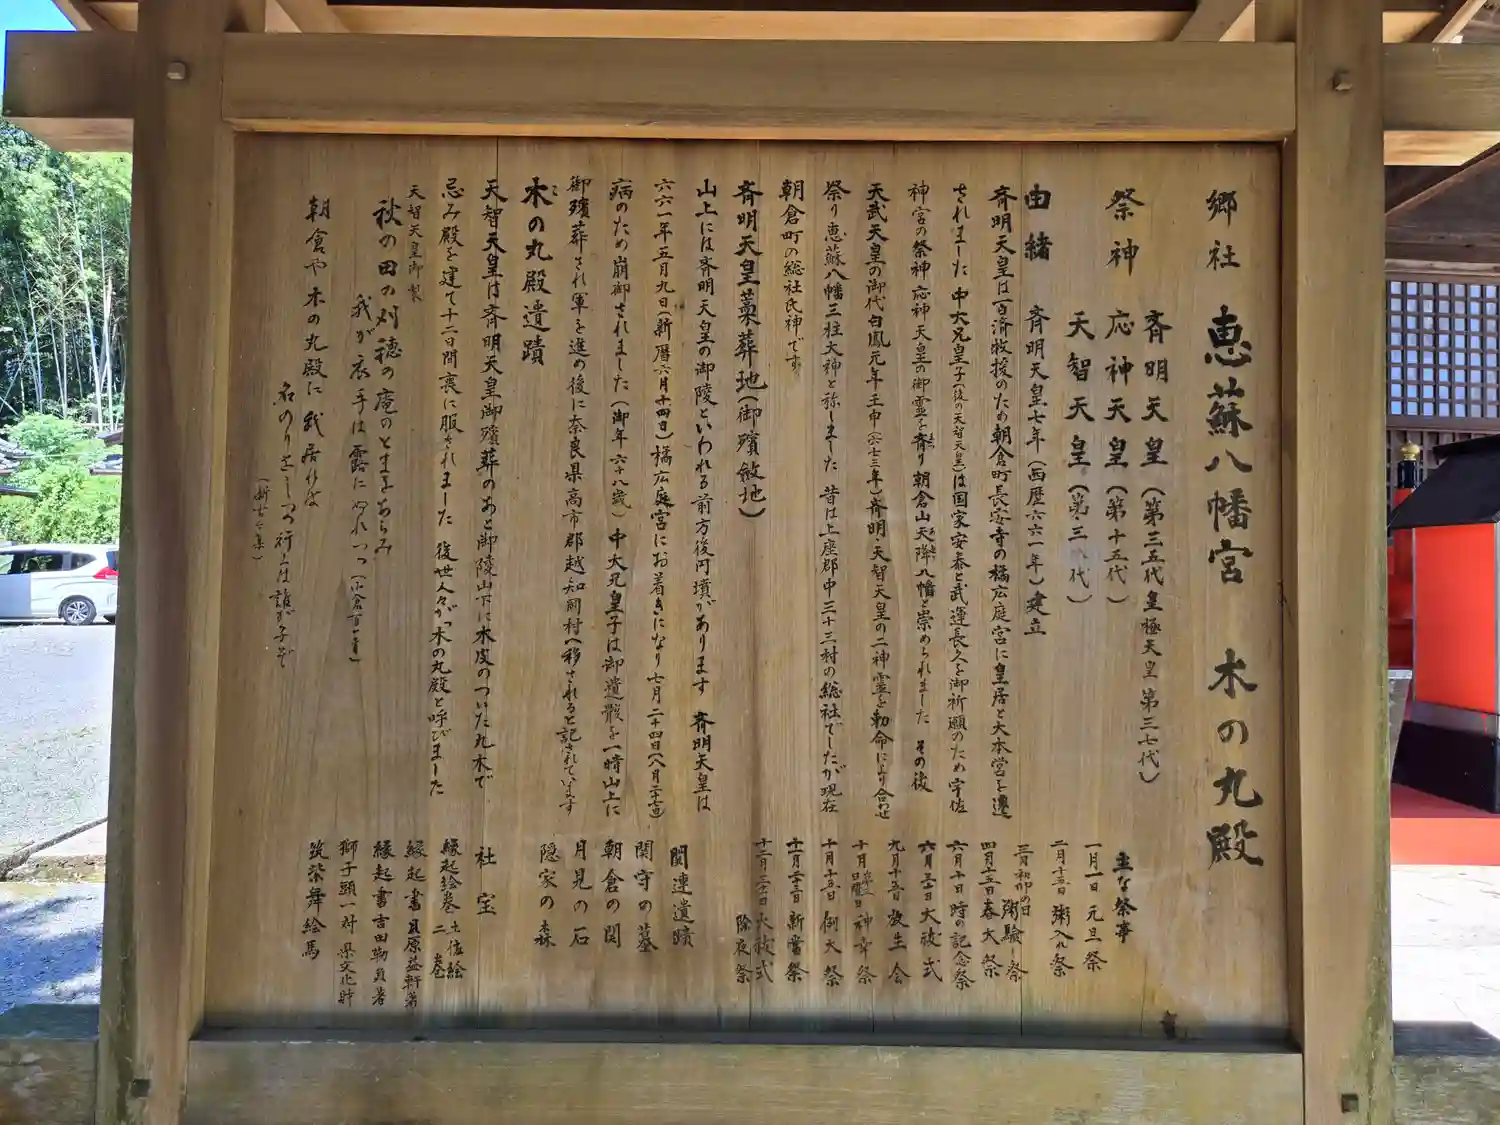 郷社 恵蘇八幡宮 木の丸殿
斉明天皇(第三五代皇極天皇 第三七代)
祭神 応神天皇(第十五代)
天智天皇(第三八代)
由緒 斉明天皇七年(西歴六六一年)建立
斉明天皇は百済救援のため朝倉町長安寺の橘広庭宮に皇居と大本営を遷
されました 中大兄皇子(後の天智天皇)は国家安泰と武運長久を御祈願のため宇佐
神宮の祭神 応神天皇の御霊を斉り 朝倉山天降八幡と崇められました その後
天武天皇の御代 白鳳元年壬申(六七三年)斉明・天智天皇の二神霊を勅命により合わせ
祭り 恵蘇八幡三柱大神と称しました 昔は上座郡中三十三村の総社でしたが現在
朝倉町の総社氏神です
斉明天皇藁葬地(御殯斂地)
山上には斉明天皇の御陵といわれる前方後円墳があります 斉明天皇は
六六一年五月九日(新暦六月十四日)橘広庭宮にお着きになり七月二十四日(八月二十七日)
病のため崩御されました(御年六十八歳) 中大兄皇子は御遺骸を一時山上に
御殯葬され軍を進め後に奈良県高市郡越知岡村へ移されると記されています
木の丸殿遺蹟
天智天皇は斉明天皇御殯葬のあと御陵山下に木皮のついた丸木で
忌み殿を建て十二日間喪に服されました 後世人々が木の丸殿と呼びました
天智天皇御製
秋の田の刈穂の庵のとまをあらみ
我が衣手は露にぬれつつ(小倉百人一首)
朝倉や木の丸殿に我居れば
名のりをしつつ行くは誰が子ぞ
(新古今集)
主な祭事
一月一日 元旦祭
二月十五日 粥入れ祭
三月初卯の日 粥験祭
四月十五日 春大祭
六月十日 時の記念祭
六月三十日 大祓式
九月十五日 放生会
十月 神幸祭
十月十五日 例大祭
十一月二十三日 新嘗祭
十二月三十一日 大祓式
除夜祭
関連遺蹟
関守の墓
朝倉の関
月見の石
隠家の森
社宝
縁起絵巻 土佐絵 二巻
縁起書 貝原益軒著
縁起書 吉田勒負著
獅子頭一対 県文化財
筑栄舞絵馬